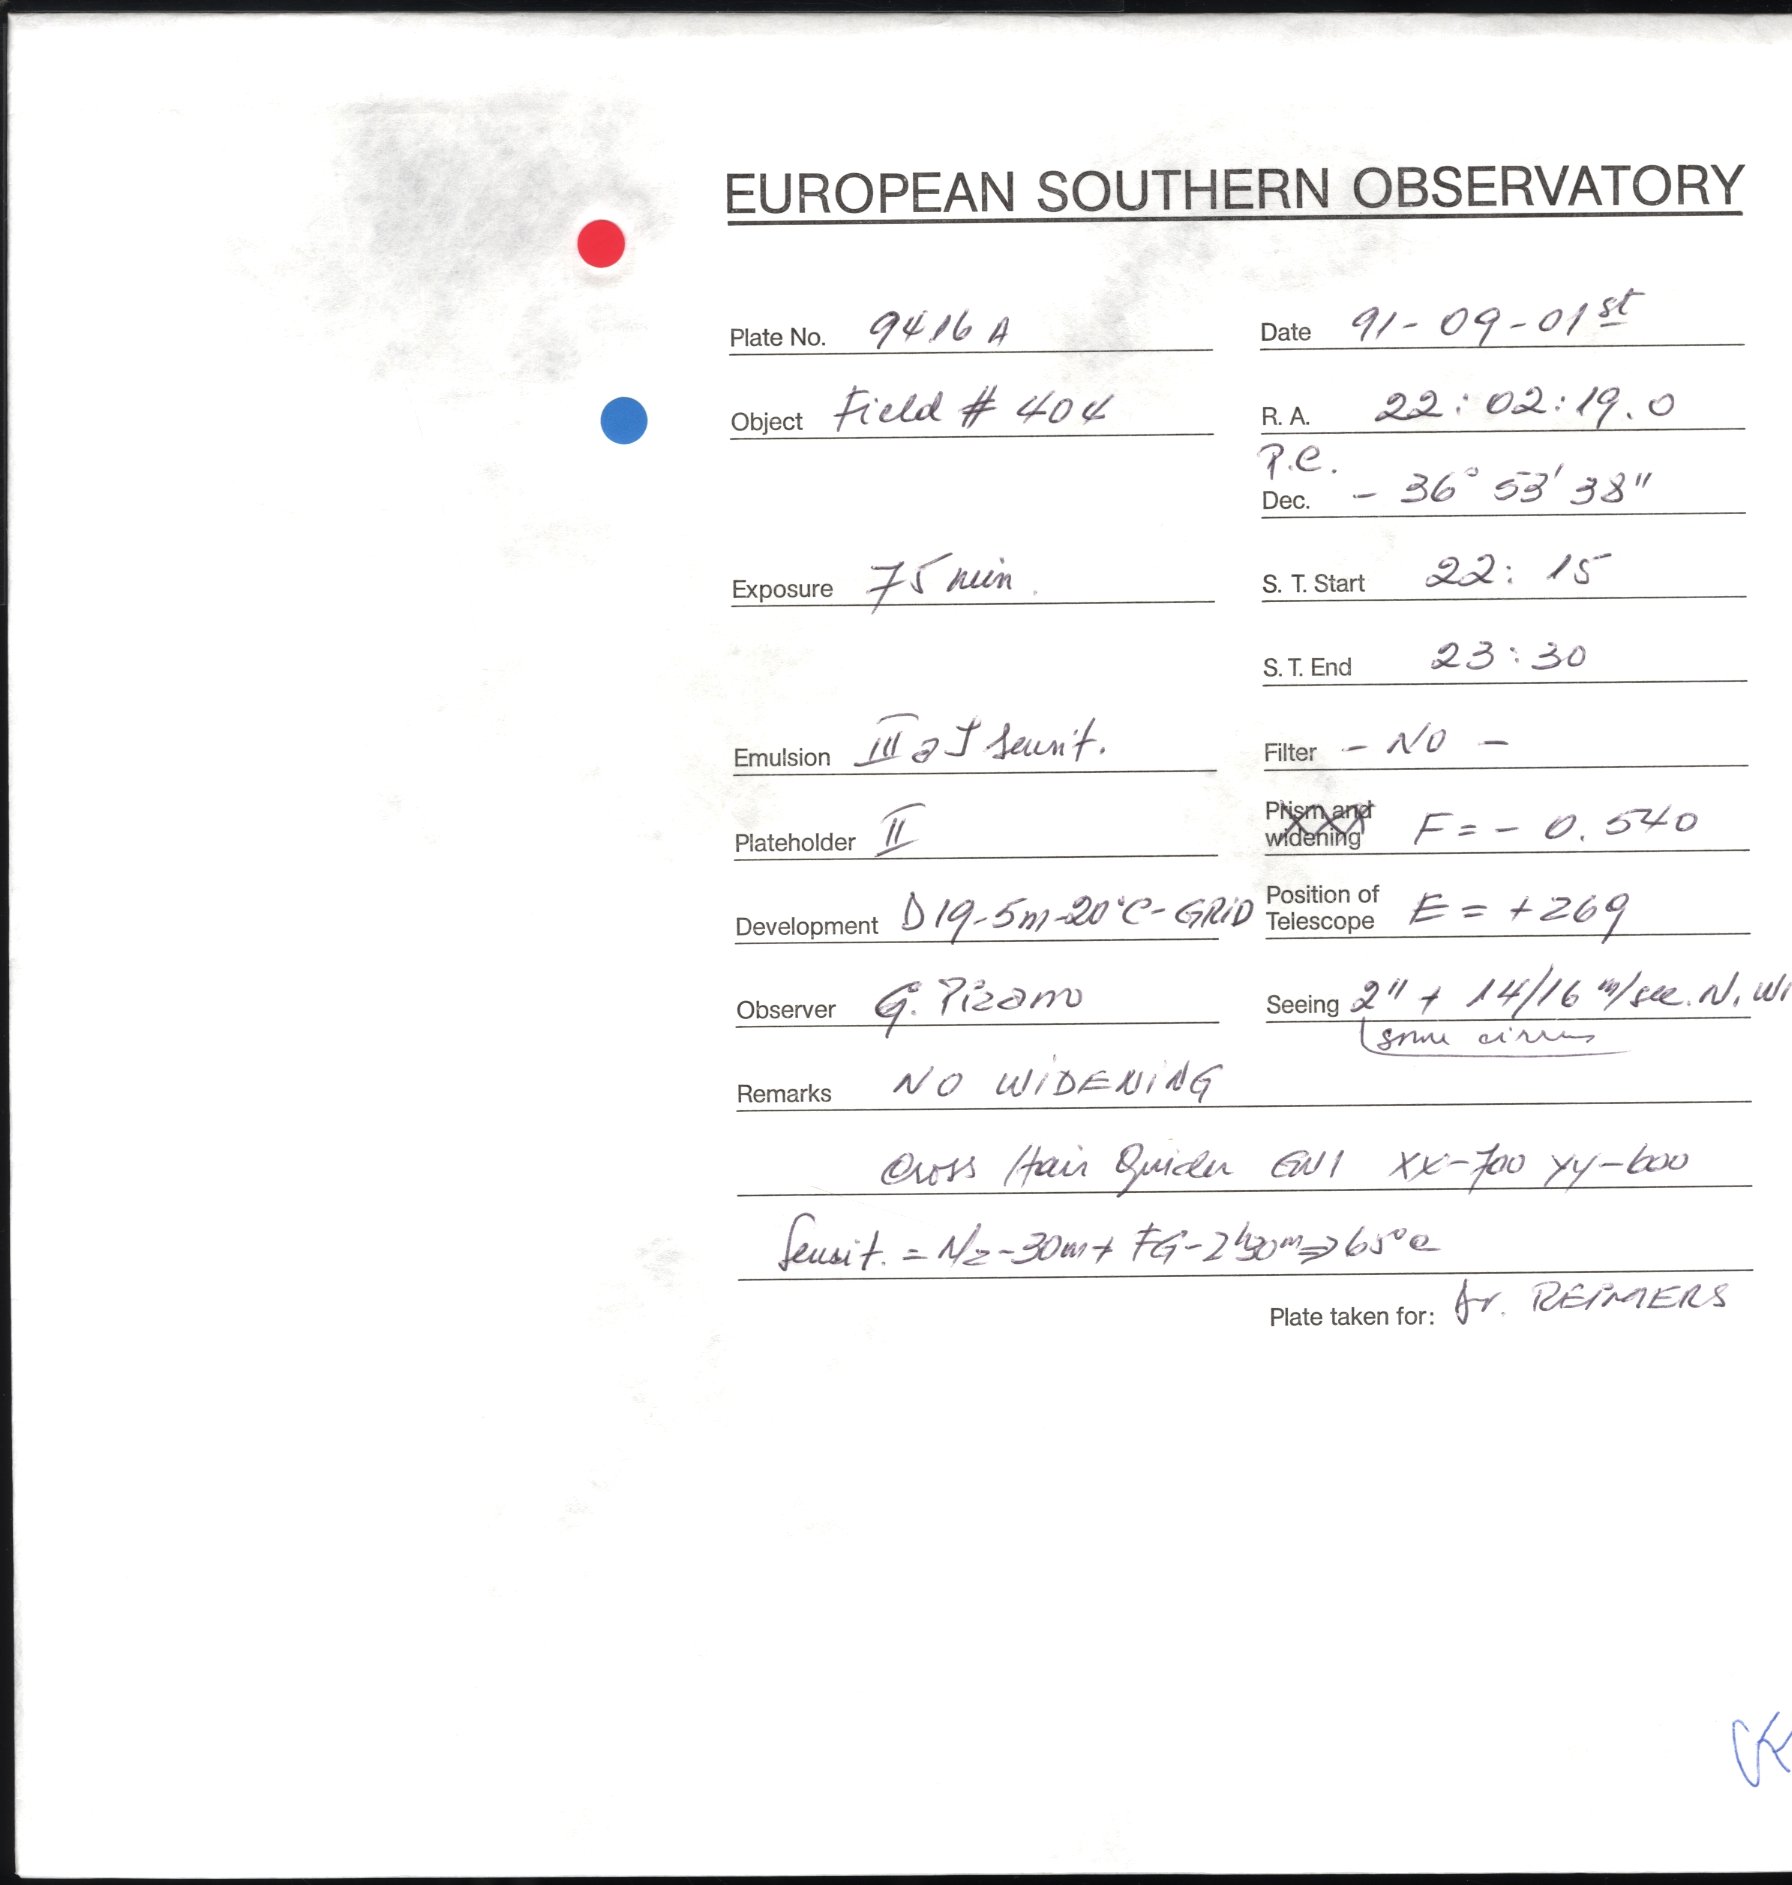 EUROPEAN SOUTHERN OBSERVATORY
Plate No. 9416 A
Date 91-09-01st
Object Field # 404
R. A. 22:02:19.0
P.C.
Dec. - 36° 53' 38"
Exposure 75 min.
S. T. Start 22: 15
S. T. End 23:30
Emulsion III a J Sensit.
Filter - NO -
Plateholder II
Prism and widening F = - 0.540
Development D19-5m-20°C-GRID
Position of Telescope E = +269
Observer G. Pizarro
Seeing 2" + 14/16 m/sec. N. Wi
some cirrus
Remarks NO WIDENING
Cross Hair Guider GN1 XX-700 YY-600
Sensit. = N2-30m + FG-2h30m => 65°C
Plate taken for: Dr. REIMERS